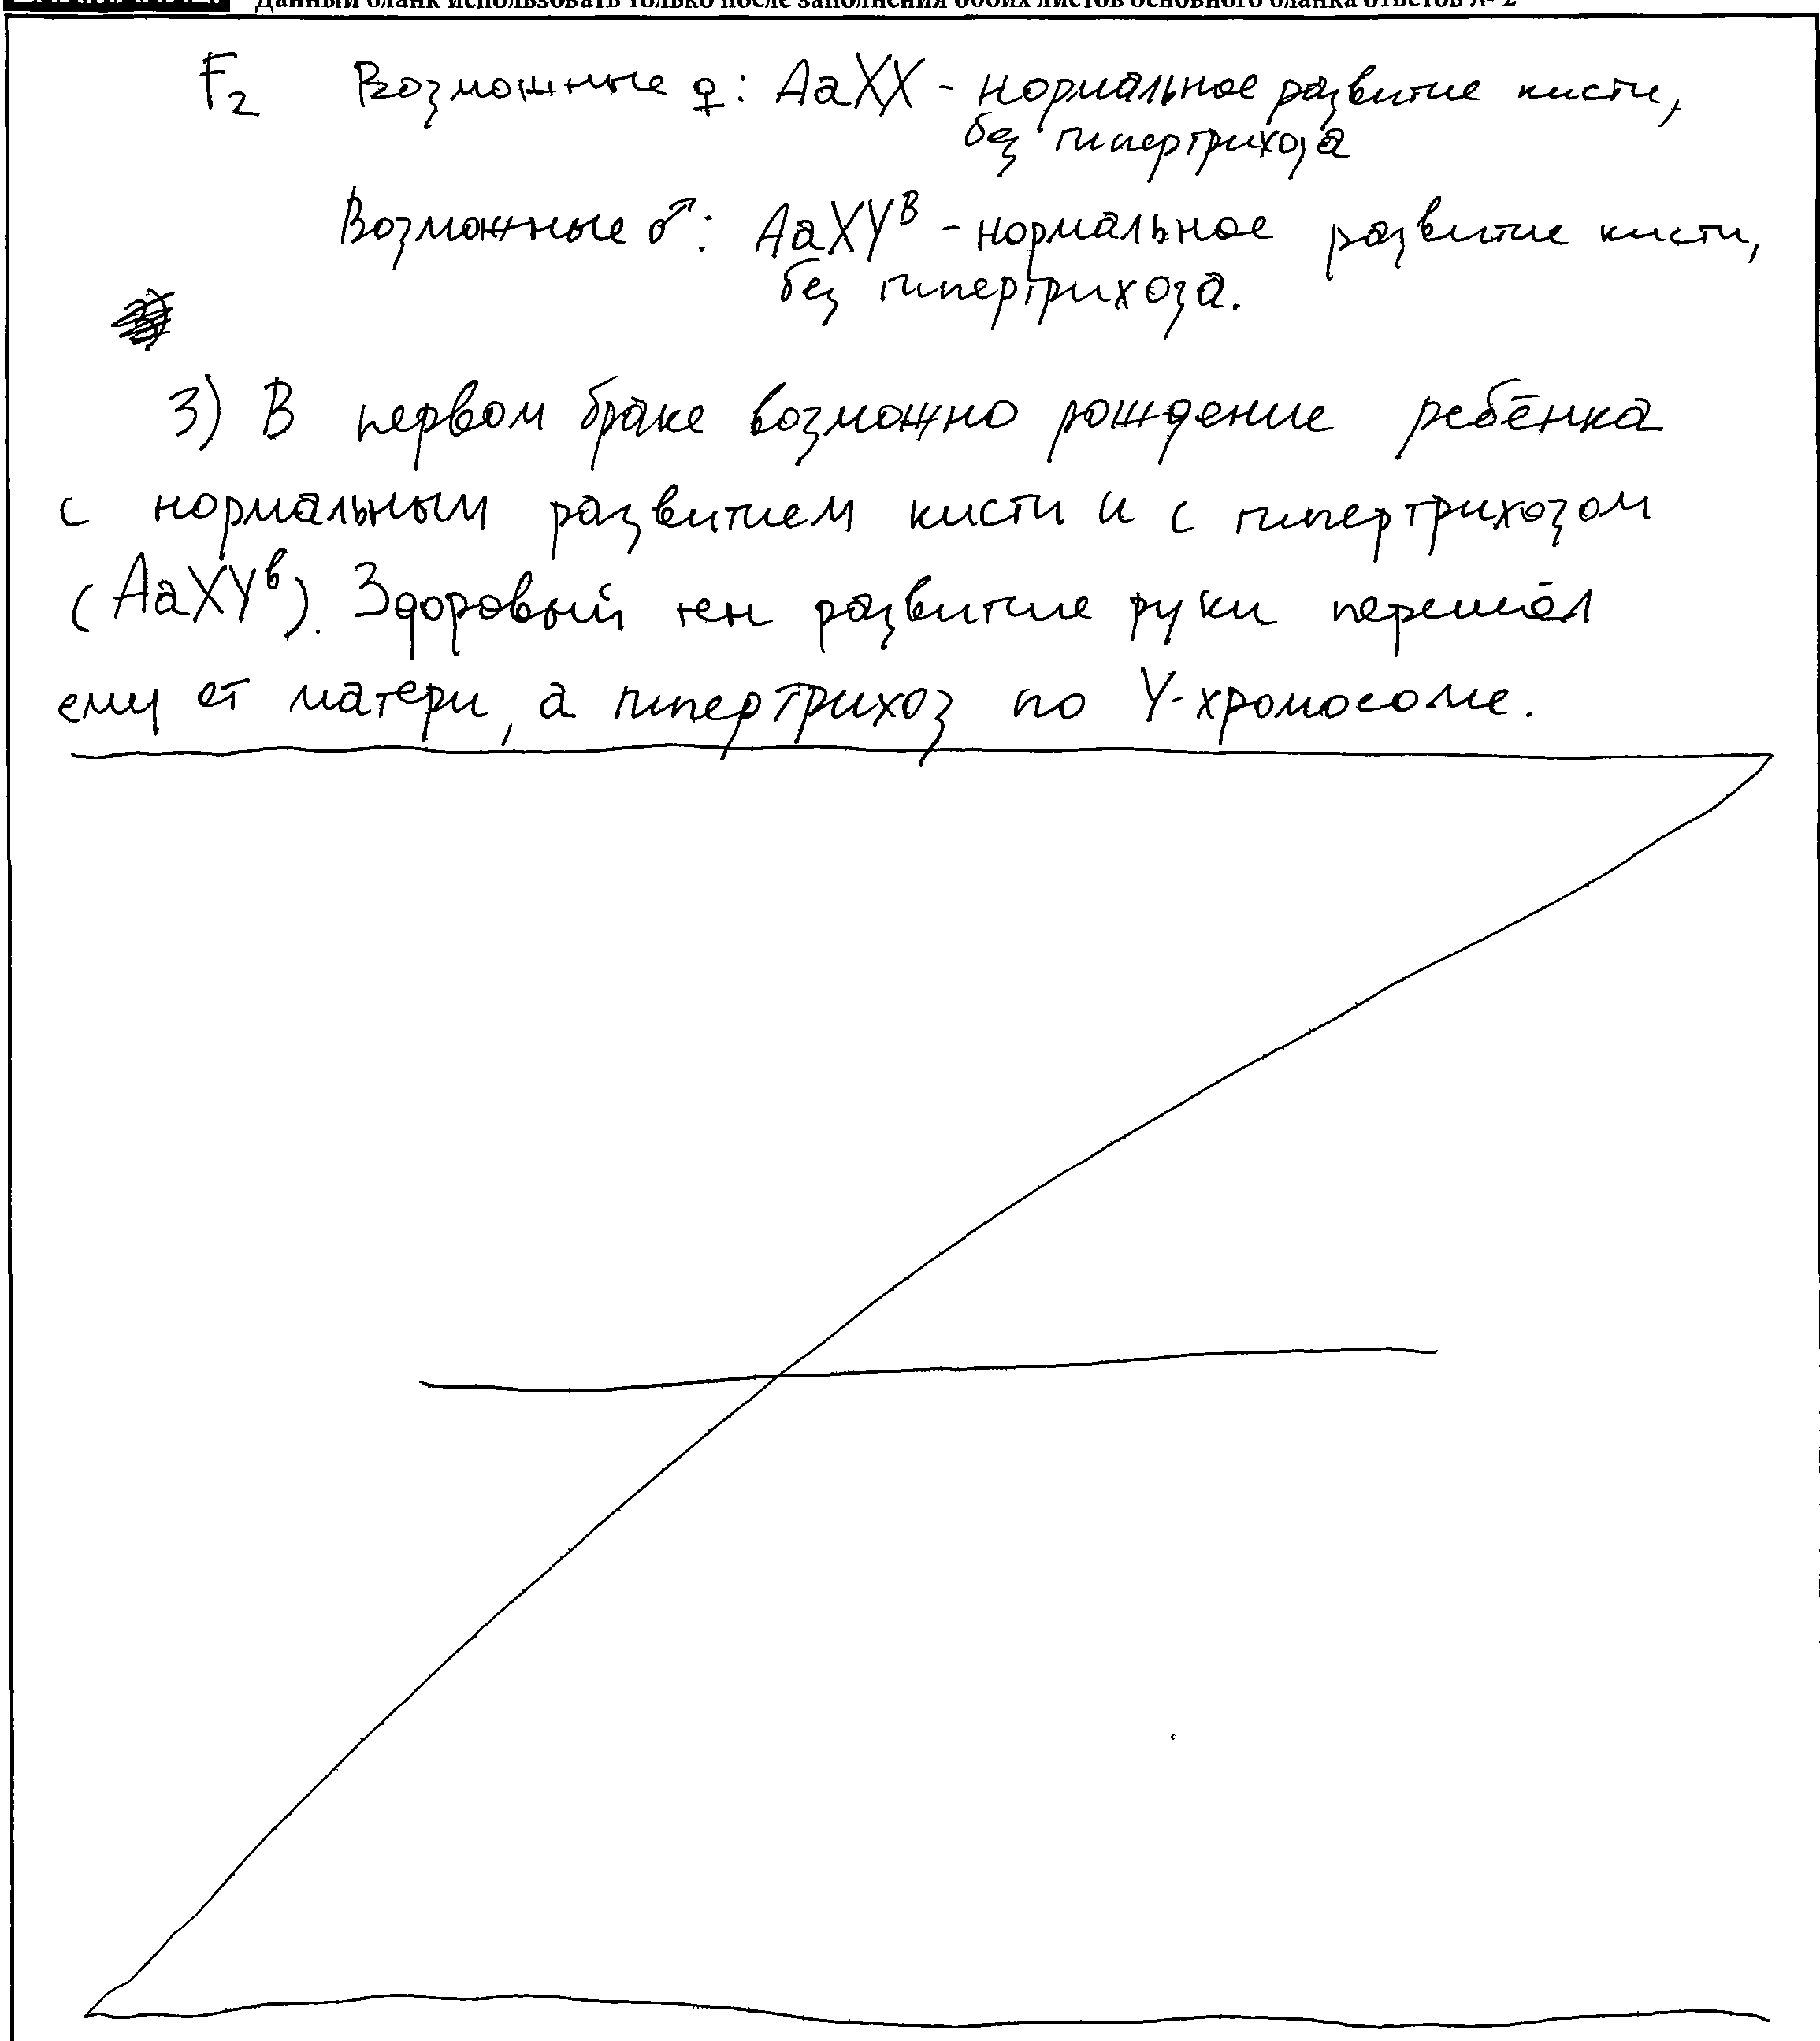 Данный бланк использовать только после заполнения обоих листов основного бланка ответов № 2
F₂ Возможные ♀: AaXX - нормальное развитие кисти,
без гипертрихоза
Возможные ♂: AaXYᴮ - нормальное развитие кисти,
без гипертрихоза.
3) В первом браке возможно рождение ребёнка
с нормальным развитием кисти и с гипертрихозом
(AaXYᵇ). Здоровый ген развитие руки перешёл
ему от матери, а гипертрихоз по Y-хромосоме.